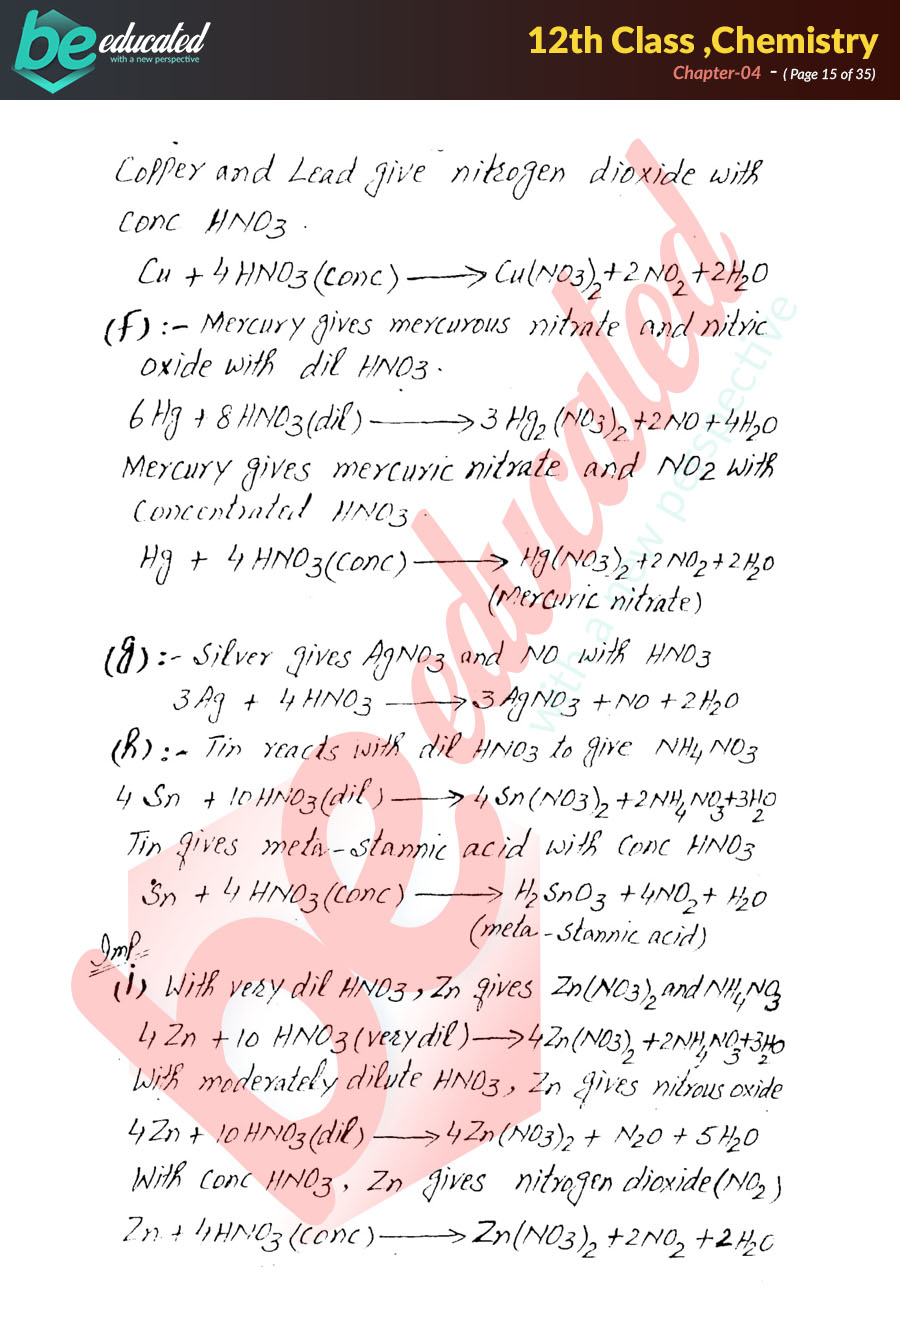 be educated
with a new perspective
12th Class ,Chemistry
Chapter-04 - ( Page 15 of 35)
Copper and Lead give nitrogen dioxide with
conc HNO3.
Cu + 4HNO3(conc) ⟶ Cu(NO3)2+2NO2+2H2O
(f):- Mercury gives mercurous nitrate and nitric
oxide with dil HNO3.
6Hg + 8HNO3(dil) ⟶ 3Hg2(NO3)2+2NO+4H2O
Mercury gives mercuric nitrate and NO2 with
Concentrated HNO3.
Hg + 4HNO3(conc) ⟶ Hg(NO3)2+2NO2+2H2O
(Mercuric nitrate)
(g):- Silver gives AgNO3 and NO with HNO3
3Ag + 4HNO3 ⟶ 3AgNO3 +NO +2H2O
(h):- Tin reacts with dil HNO3 to give NH4NO3
4Sn + 10HNO3(dil) ⟶ 4Sn(NO3)2+2NH4NO3+3H2O
Tin gives meta-stannic acid with conc HNO3
Sn + 4HNO3(conc) ⟶ H2SnO3 +4NO2+ H2O
(meta-stannic acid)
Imp
(i) With very dil HNO3, Zn gives Zn(NO3)2 and NH4NO3
4Zn +10 HNO3(very dil) ⟶ 4Zn(NO3)2 +2NH4NO3+3H2O
With moderately dilute HNO3, Zn gives nitrous oxide
4Zn+ 10HNO3(dil) ⟶ 4Zn(NO3)2 + N2O + 5H2O
With conc HNO3, Zn gives nitrogen dioxide(NO2)
Zn + 4HNO3(conc) ⟶ Zn(NO3)2 +2NO2 +2H2O
be educated
with a new perspective